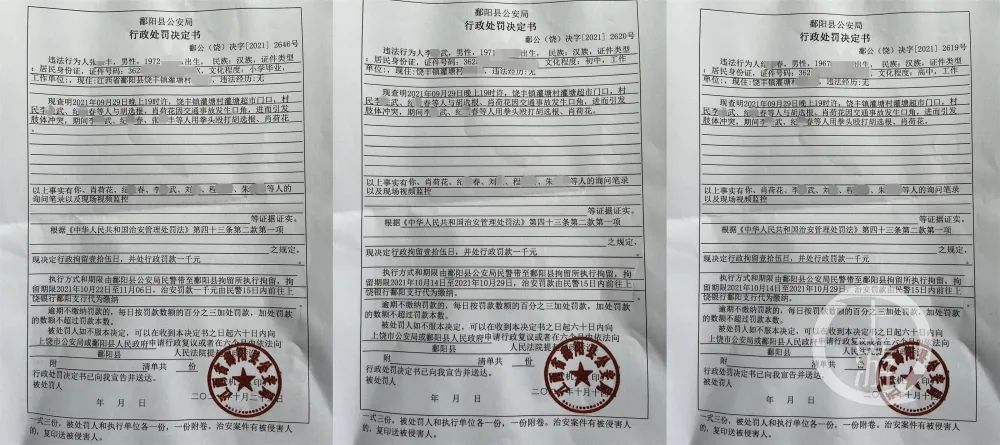 鄱阳县公安局
行政处罚决定书
鄱公（饶）决字[2021] 2646号
违法行为人张 丰，男性，1972 出生， 民族：汉族，证件类型
：居民身份证，证件号码：362 X，文化程度：小学毕业，
工作单位：，现住：江西省鄱阳县饶丰镇灌塘村 ，违法经历：无
现查明2021年09月29日晚上19时许，饶丰镇灌塘村灌塘超市门口，村
民李 武、纪 春等人与胡选根、肖荷花因交通事故发生口角，进而引发
肢体冲突，期间李 武、纪 春、张 丰等人用拳头殴打胡选根、肖荷花
。
以上事实有你、肖荷花、纪 春、李 武、刘 、程 、朱 等人的
询问笔录以及现场视频监控
等证据证实。
根据《中华人民共和国治安管理处罚法》第四十三条第二款第一项
之规定，
现决定行政拘留壹拾伍日，并处行政罚款一千元
。
执行方式和期限由鄱阳县公安局民警带至鄱阳县拘留所执行拘留，拘
留期限2021年10月22日至11月06日，治安罚款一千元由民警15日内前往上
饶银行鄱阳支行代为缴纳
逾期不缴纳罚款的，每日按罚款数额的百分之三加处罚款，加处罚款
的数额不超过罚款本数。
被处罚人如不服本决定，可以在收到本决定书之日起六十日内向
上饶市公安局或鄱阳县人民政府申请行政复议或者在六个月内依法向
鄱阳县 人民法院提
附 清单共 份
行政处罚决定书已向我宣告并送达。
被处罚人
年 月 日
一式三份，被处罚人和执行单位各一份，一份附卷。治安案件有被侵害人
的，复印送被侵害人。
鄱阳县公安局
行政处罚决定书
鄱公（饶）决字[2021] 2620号
违法行为人李 武，男性，1971 出生， 民族：汉族，证件类型
：居民身份证，证件号码：362 ，文化程度：初中，工作
单位：，现住：饶丰镇灌塘村 ，违法经历：无
现查明2021年09月29日晚上19时许，饶丰镇灌塘村灌塘超市门口，村
民李 武、纪 春等人与胡选根、肖荷花因交通事故发生口角，进而引发
肢体冲突，期间李 武、纪 春等人用拳头殴打胡选根、肖荷花。
以上事实有你、肖荷花、纪 春、刘 、程 、朱 等人的询问笔录
以及现场视频监控
等证据证实。
根据《中华人民共和国治安管理处罚法》第四十三条第二款第一项
之规定，
现决定行政拘留壹拾伍日，并处行政罚款一千元
。
执行方式和期限由鄱阳县公安局民警带至鄱阳县拘留所执行拘留，拘
留期限2021年10月14日至2021年10月29日，治安罚款一千元由民警15日内前往上
饶银行鄱阳支行代为缴纳。
逾期不缴纳罚款的，每日按罚款数额的百分之三加处罚款，加处罚款
的数额不超过罚款本数。
被处罚人如不服本决定，可以在收到本决定书之日起六十日内向
上饶市公安局或鄱阳县人民政府申请行政复议或者在六个月内依法向
鄱阳县 人民法院提
附 清单共 份
行政处罚决定书已向我宣告并送达。
被处罚人
年 月 日
一式三份，被处罚人和执行单位各一份，一份附卷。治安案件有被侵害人
的，复印送被侵害人。
鄱阳县公安局
行政处罚决定书
鄱公（饶）决字[2021] 2619号
违法行为人纪 春，男性，1967 出生， 民族：汉族，证件类型
：居民身份证，证件号码：362 ，文化程度：高中，工作
单位：，现住：饶丰镇灌塘村 ，违法经历：无
现查明2021年09月29日晚上19时许，饶丰镇灌塘村灌塘超市门口，村
民李 武、纪 春等人与胡选根、肖荷花因交通事故发生口角，进而引发
肢体冲突，期间李 武、纪 春等人用拳头殴打胡选根、肖荷花。
以上事实有你、肖荷花、李 武、刘 、程 、朱 等人的询问笔录
以及现场视频监控
等证据证实。
根据《中华人民共和国治安管理处罚法》第四十三条第二款第一项
之规定，
现决定行政拘留壹拾伍日，并处行政罚款一千元
。
执行方式和期限由鄱阳县公安局民警带至鄱阳县拘留所执行拘留，拘
留期限2021年10月14日至2021年10月29日，治安罚款一千元由民警15日内前往上
饶银行鄱阳支行代为缴纳
逾期不缴纳罚款的，每日按罚款数额的百分之三加处罚款，加处罚款
的数额不超过罚款本数。
被处罚人如不服本决定，可以在收到本决定书之日起六十日内向
上饶市公安局或鄱阳县人民政府申请行政复议或者在六个月内依法向
鄱阳县
附 清单共 份
行政处罚决定书已向我宣告并送达。
被处罚人
年 月 日
一式三份，被处罚人和执行单位各一份，一份附卷。治安案件有被侵害人
的，复印送被侵害人。